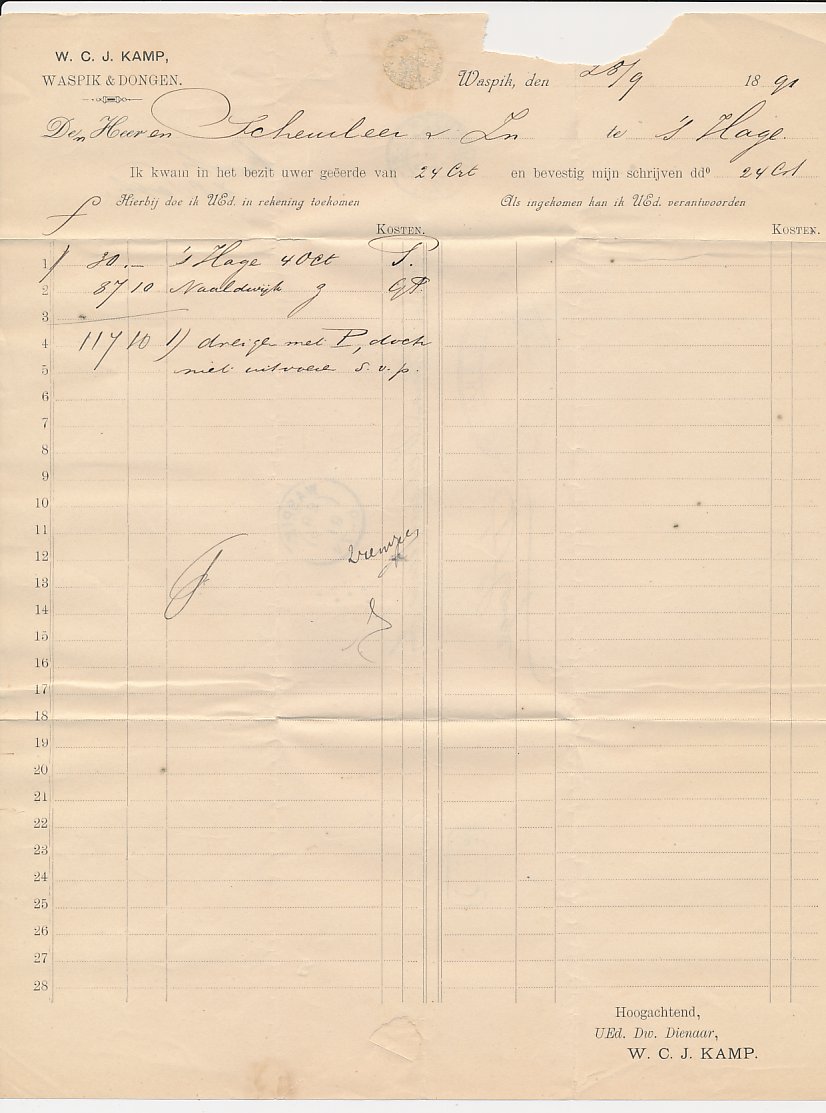 W. C. J. KAMP,
WASPIK & DONGEN.
Waspik, den 28/9 1891
Den Heeren Scheurleer & Zn te 's Hage
Ik kwam in het bezit uwer geëerde van 24 Crt en bevestig mijn schrijven ddº 24 Crt
Hierbij doe ik UEd. in rekening toekomen
Als ingekomen kan ik UEd. verantwoorden
f
KOSTEN.
KOSTEN.
1 1) 30.— 's Hage 4 Oct P.
2 87 10 Naaldwijk 9 GP.
3
4 117 10 1) dreigen met P, doch
5 niet uitvoeren s.v.p.
6
7
8
9
10
11
12
13
14
15
16
17
18
19
20
21
22
23
24
25
26
27
28
Hoogachtend,
UEd. Dw. Dienaar,
W. C. J. KAMP.